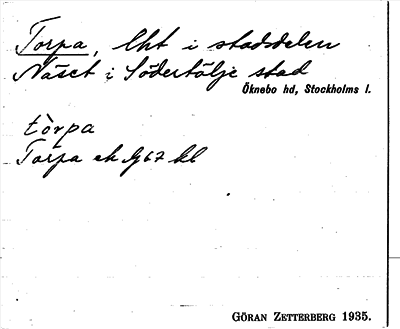 Torpa, lht i stadsdelen
Näset i Södertälje stad
Öknebo hd, Stockholms l.
tòrpa
Torpa ek G67 bl
GÖRAN ZETTERBERG 1935.